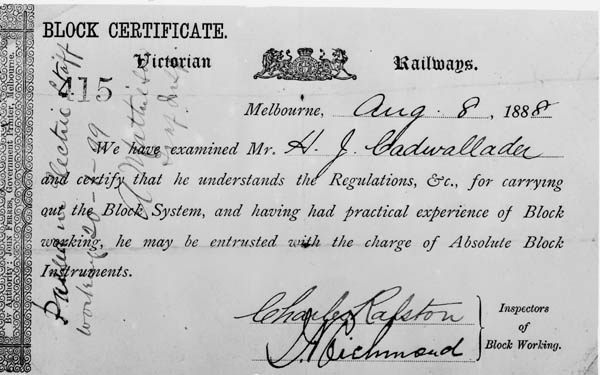 BLOCK CERTIFICATE.
Victorian Railways.
415
Melbourne, Aug. 8, 1888
We have examined Mr. H. J. Cadwallader
and certify that he understands the Regulations, &c., for carrying
out the Block System, and having had practical experience of Block
working, he may be entrusted with the charge of Absolute Block
Instruments.
Charles Ralston
J. Richmond
Inspectors
of
Block Working.
By Authority: JOHN FERRES, Government Printer, Melbourne.
Passed in Electric Staff
working